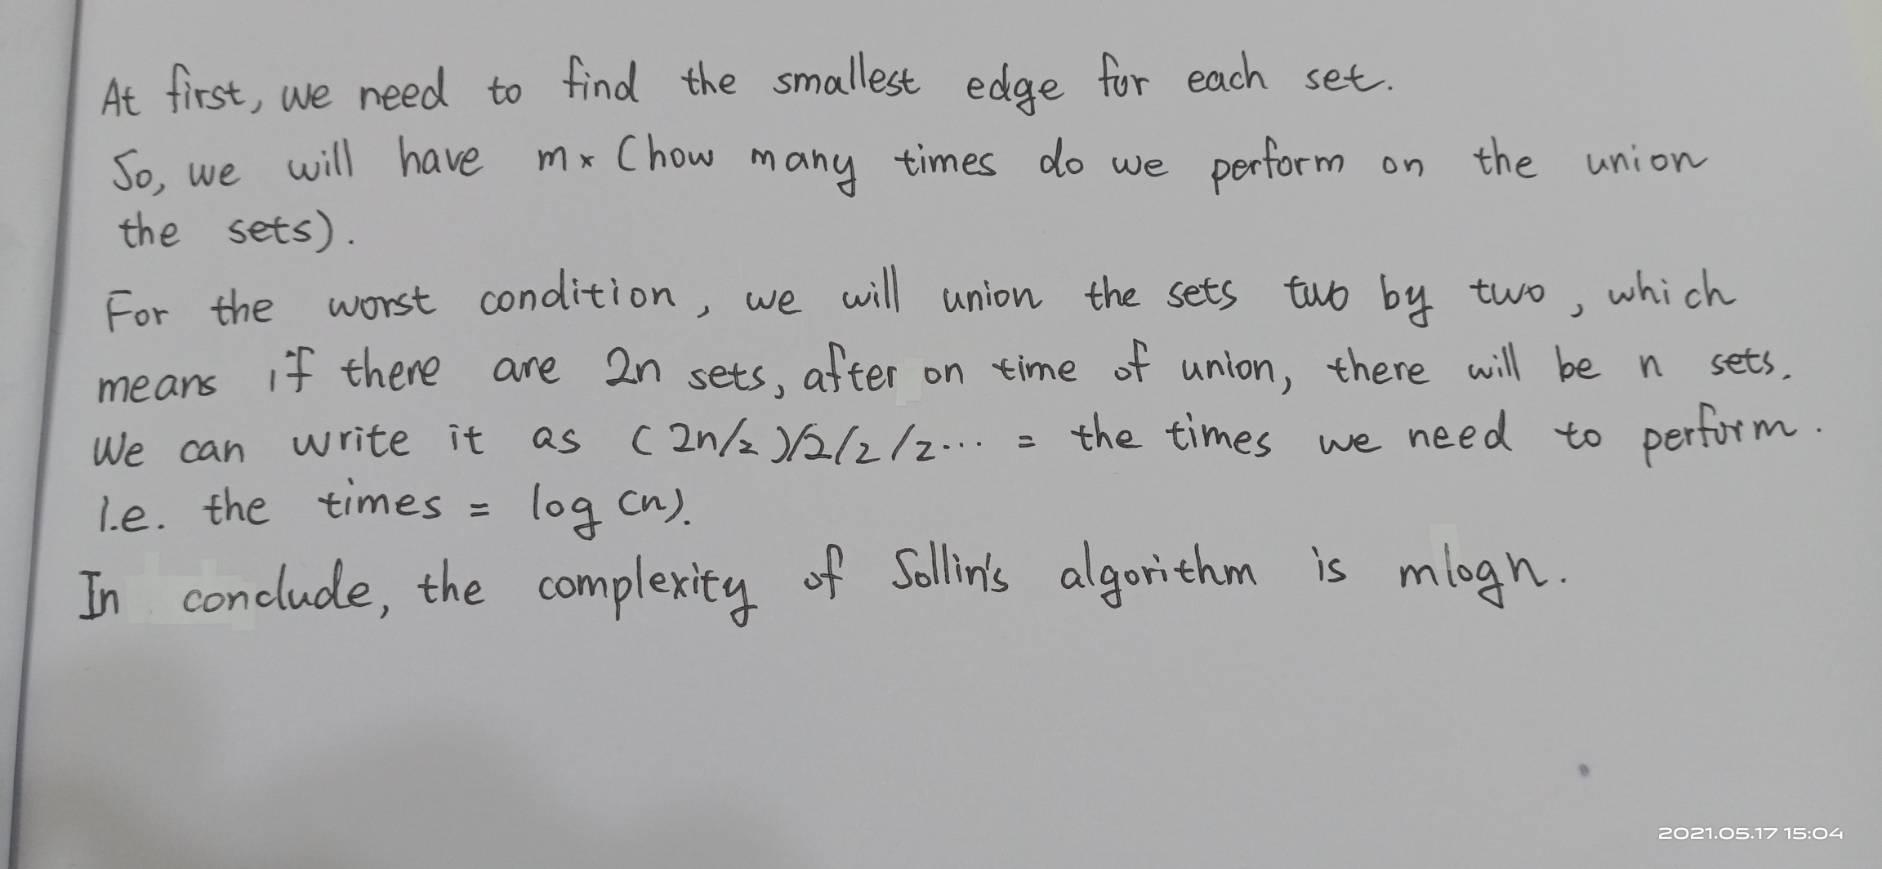 At first, we need to find the smallest edge for each set.
So, we will have m× (how many times do we perform on the union
the sets).
For the worst condition, we will union the sets two by two, which
means if there are 2n sets, after on time of union, there will be n sets.
We can write it as (2n/2)/2/2/2... = the times we need to perform.
i.e. the times = log(n).
In conclude, the complexity of Sollin's algorithm is mlogn.
2021.05.17 15:04